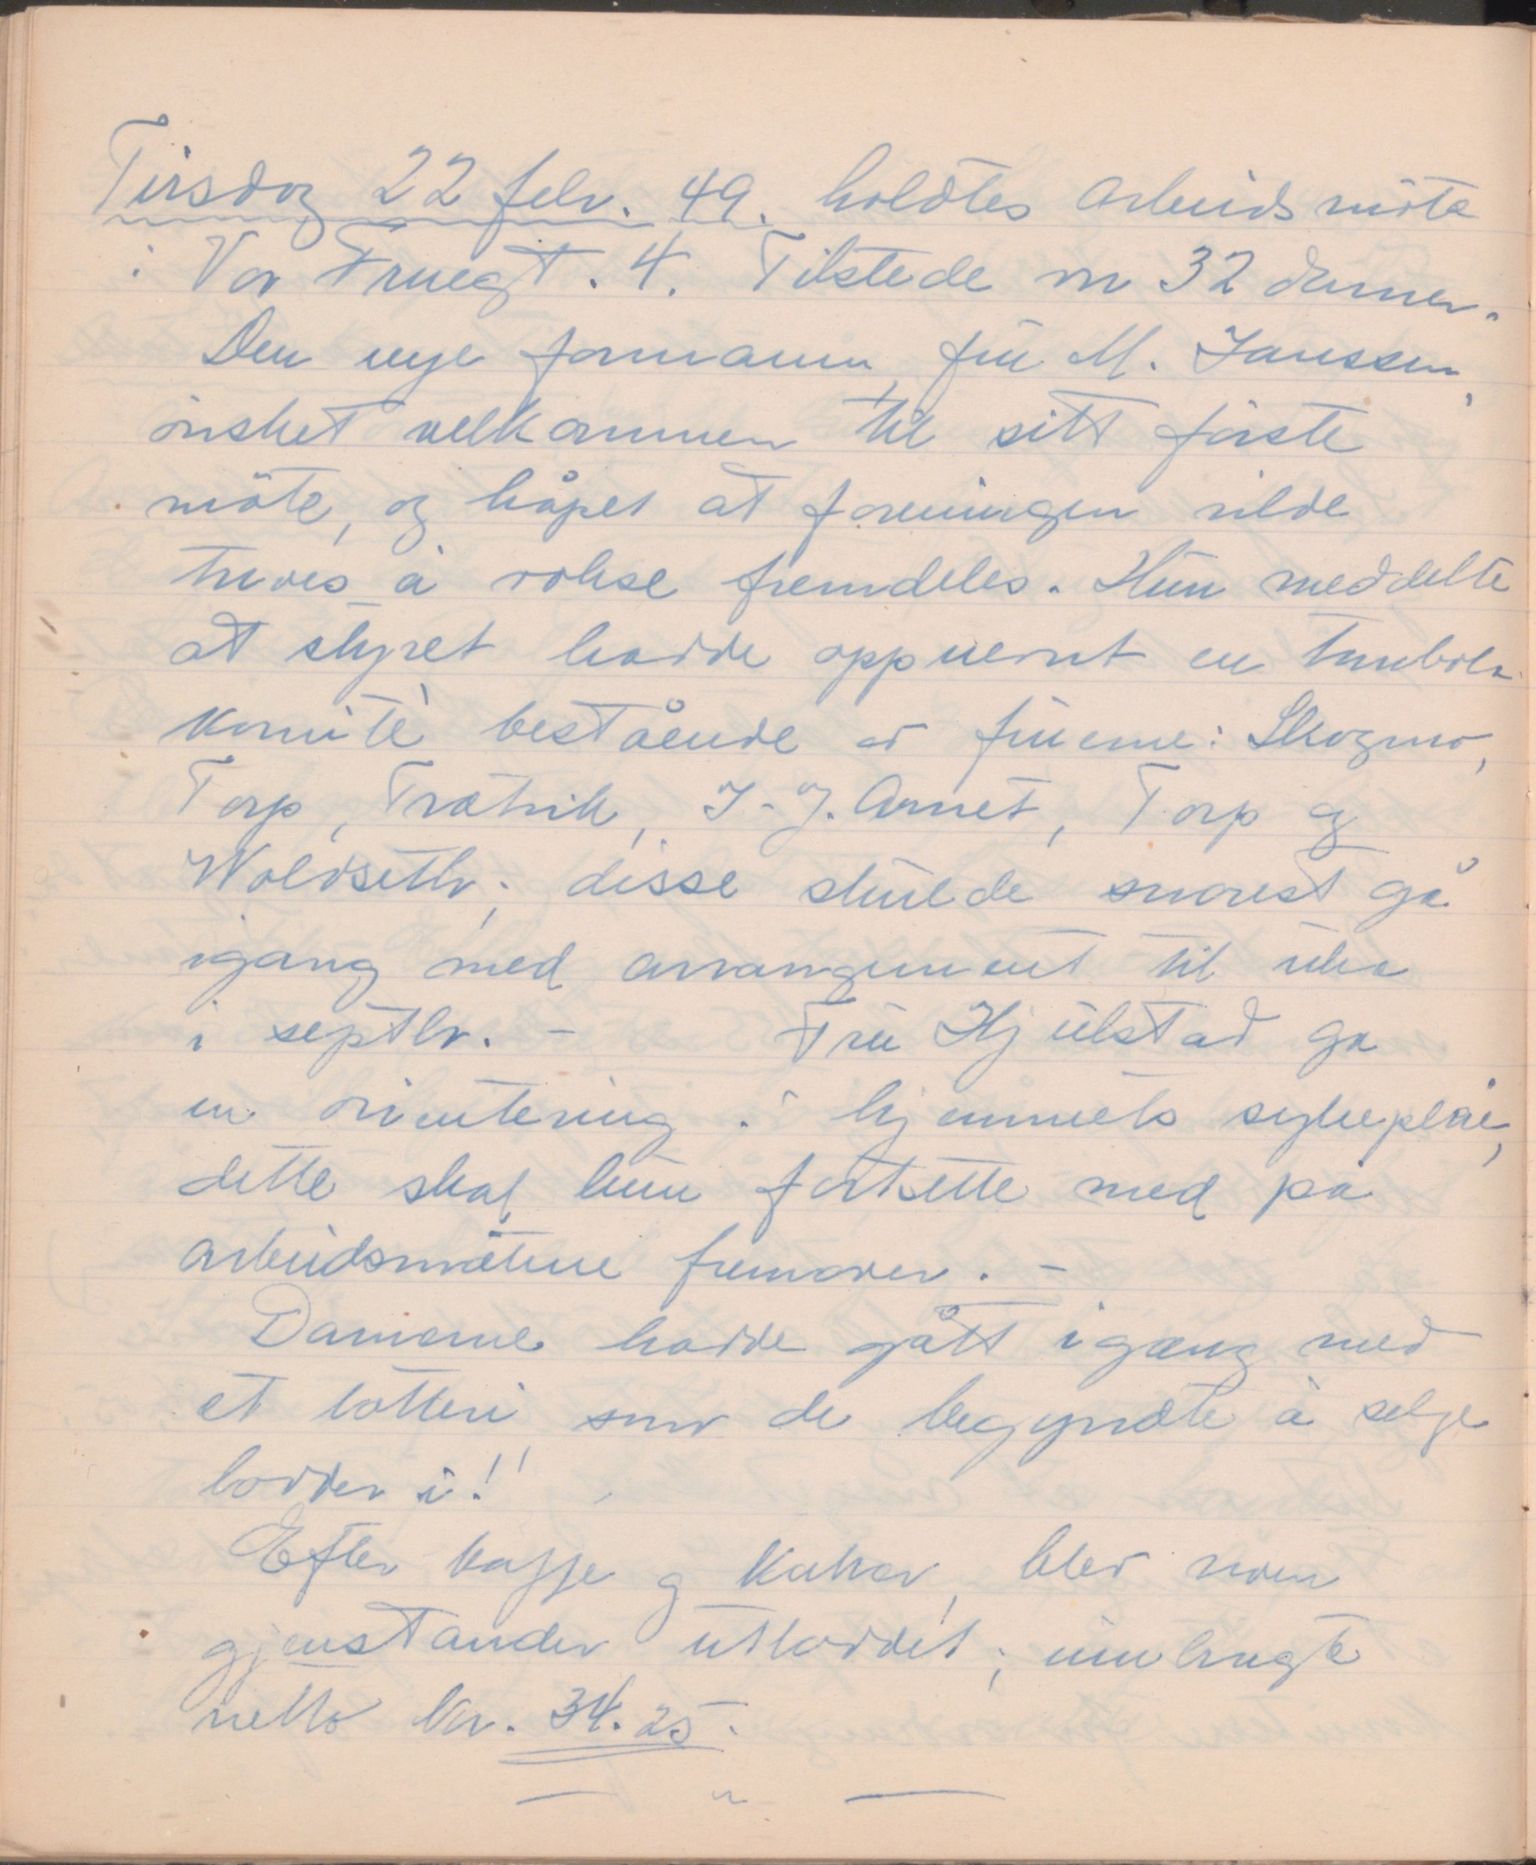 Tirsdag 22 febr. 49. holdtes arbeidsmöte
i Vor Fruegt. 4. Tilstede var 32 damer.
Den nye formann, frú M. Janssen,
önsket velkommen til sitt förste
möte, og håpet at foreningen vilde
trives å vokse fremdeles. Hún meddelte
at styret hadde oppnevnt en tombola
komité bestående av frúerne: Skogmo,
Torp, Trætvik, J. J. Arnet, Torp og
Woldseth; disse skúlde snarest gå
igang med arrangement til úka
i septbr. - Frú Hjúlstad ga
en orientering i hjemmets sykepleie,
dette skal hún fortsette med på
arbeidsmötene fremover. -
Damerne hadde gått igang med
et lotteri som de begyndte å selge
lodder i!!
Efter kaffe og kaker, blev noen
gjenstander útloddet; innbragte
netto kr. 34.25.